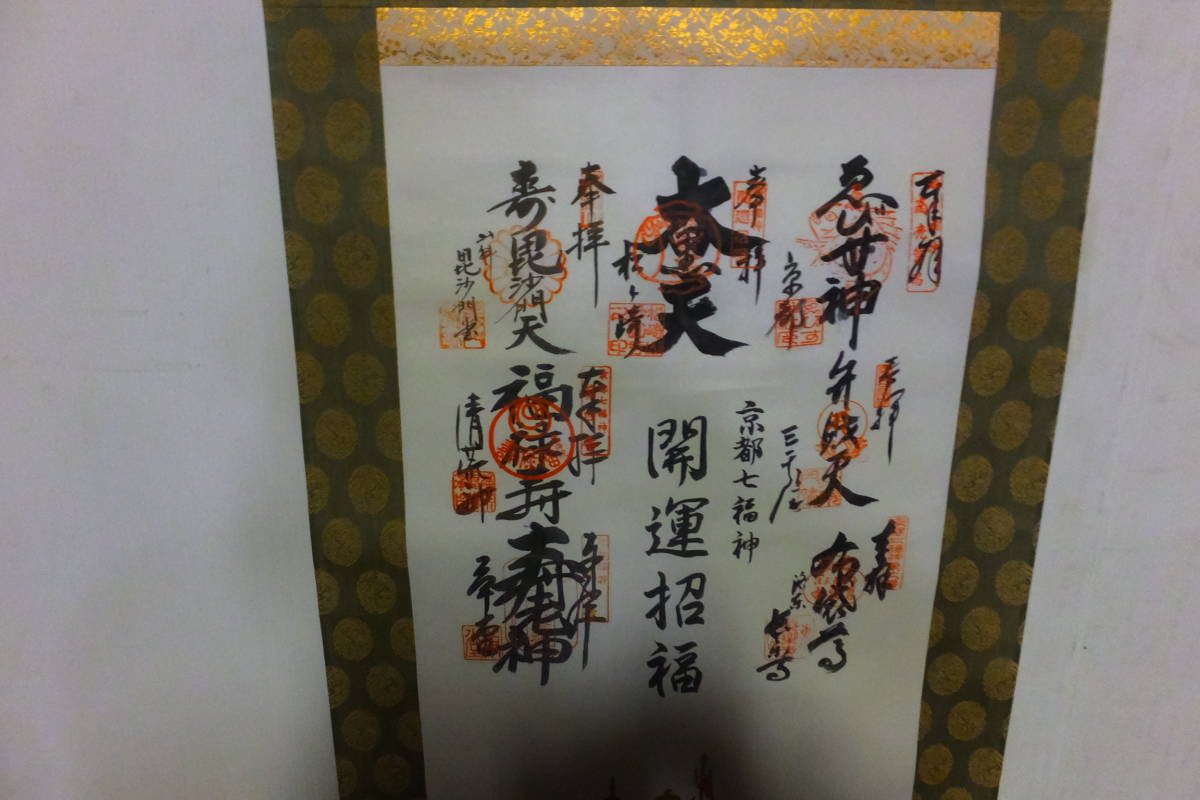 奉拝
ゑびす神
京都
奉拝
弁財天
三千院
奉拝
布袋尊
奉拝
大黒天
松ヶ崎
京都七福神
開運招福
奉拝
寿
毘沙門天
山科
毘沙門堂
奉拝
福禄寿
清荒神
奉拝
寿老神
革堂